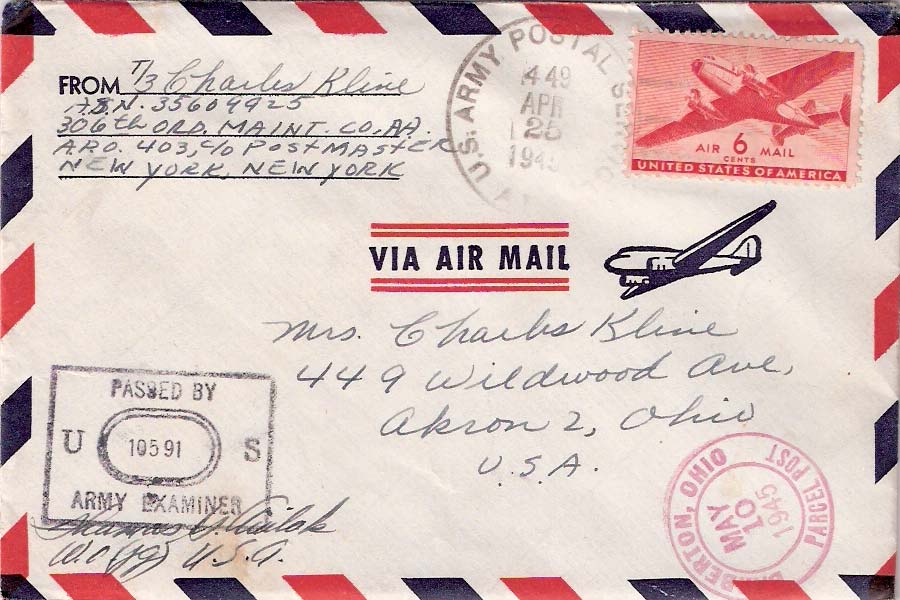 FROM T/3 Charles Kline
A.S.N. 35604925
306th ORD. MAINT. CO. AA.
A.P.O. 403, c/o POSTMASTER
NEW YORK, NEW YORK
U.S. ARMY POSTAL
APR
25
194
AIR 6 MAIL
CENTS
UNITED STATES OF AMERICA
VIA AIR MAIL
Mrs. Charles Kline
449 Wildwood Ave,
Akron 2, Ohio
U.S.A.
PASSED BY
U 10591 S
ARMY EXAMINER
W.O. (jg) U.S.A.
BARBERTON, OHIO
MAY
10
1945
PARCEL POST